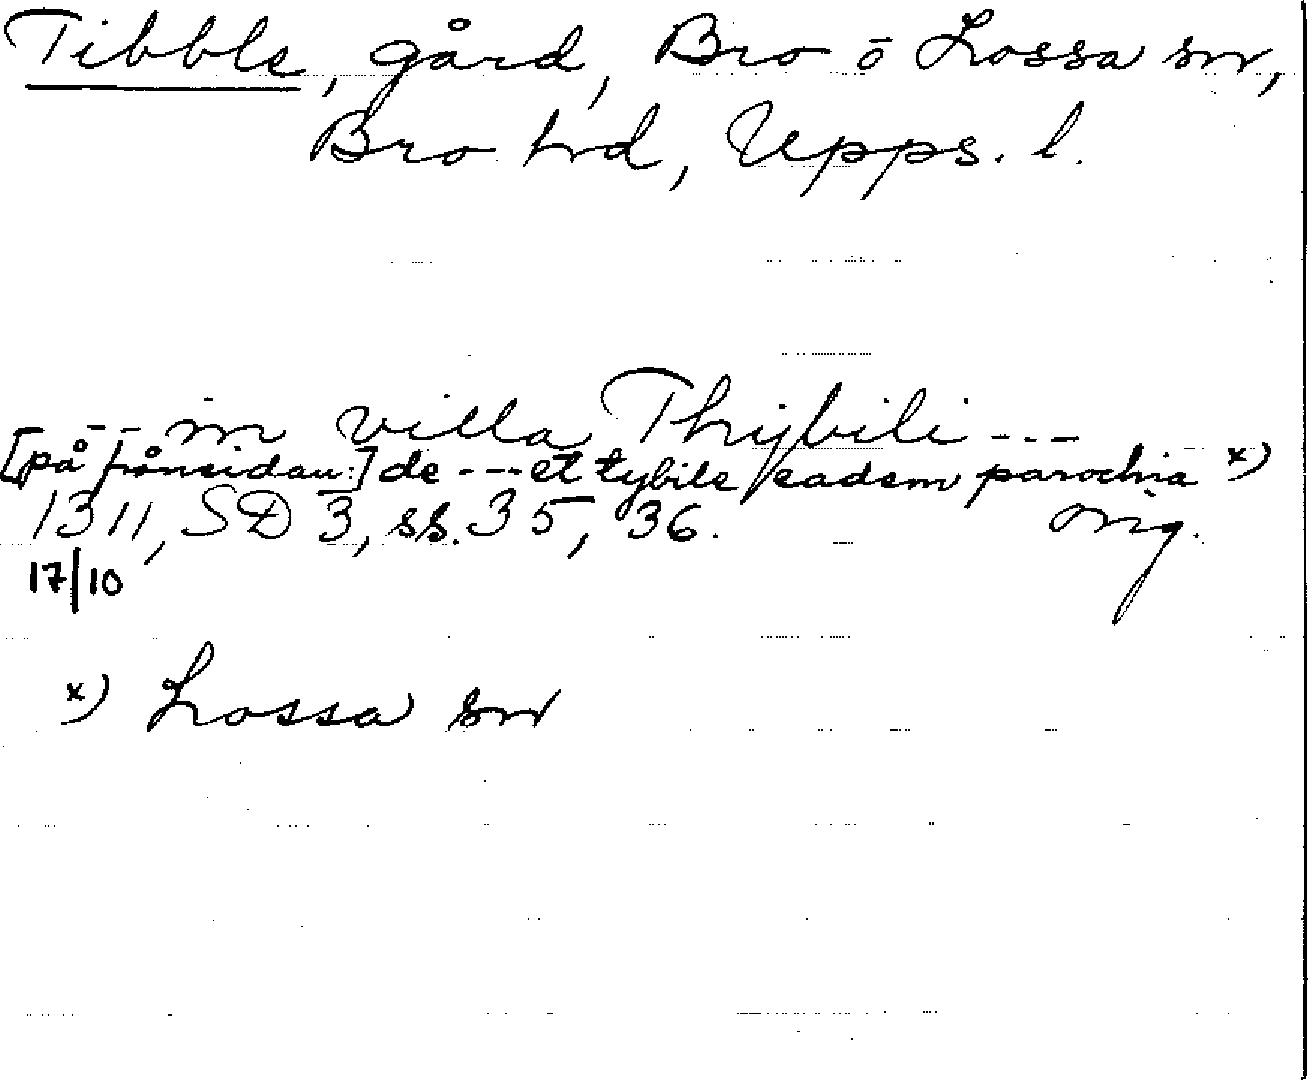 Tibble, gård, Bro o Lossa sn,
Bro hd, Upps. l.
--- in villa Thijbili ---
[på frånsidan:] de --- et tybile eadem parochia x)
1311, SD 3, ss. 35, 36. orig.
17/10
x) Lossa sn